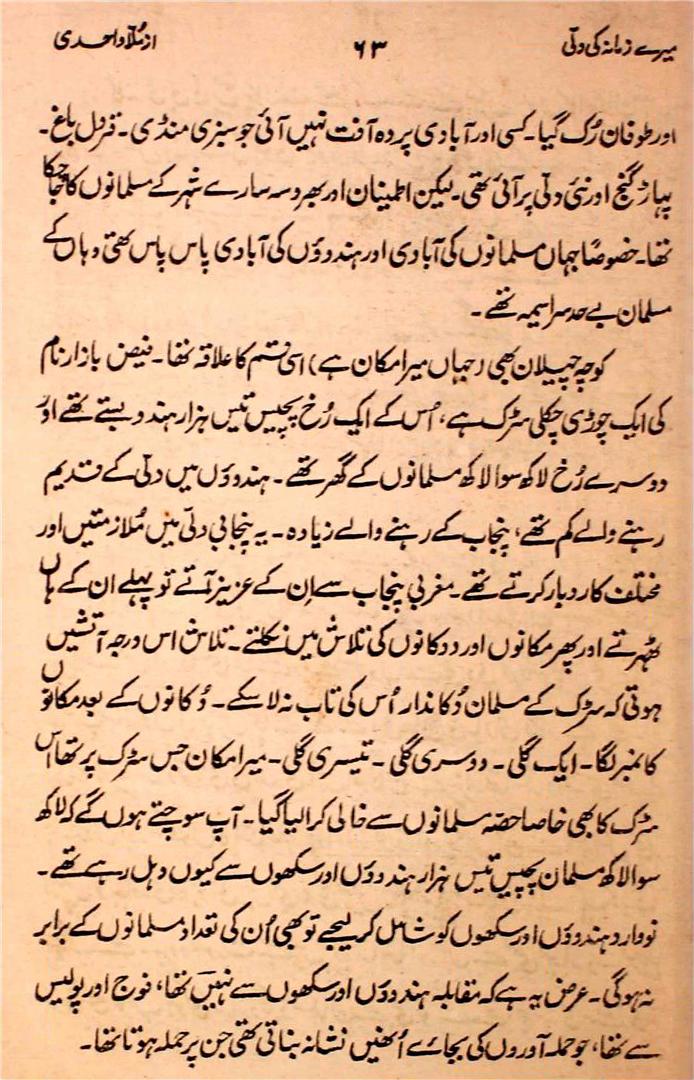 میرے زمانہ کی دلّی ۶۳ از مُلّا واحدی
اور طوفان رُک گیا۔ کسی اور آبادی پر وہ آفت نہیں آئی جو سبزی منڈی۔ قرول باغ۔
پہاڑ گنج اور نئی دلّی پر آئی تھی۔ لیکن اطمینان اور بھروسہ سارے شہر کے مسلمانوں کا جا چکا
تھا۔ خصوصًا جہاں مسلمانوں کی آبادی اور ہندوؤں کی آبادی پاس پاس تھی وہاں کے
مسلمان بے حد سراسیمہ تھے۔
کوچہ چیلان بھی (جہاں میرا مکان ہے) اسی قسم کا علاقہ تھا۔ فیض بازار نام
کی ایک چوڑی چکلی سڑک ہے، اُس کے ایک رُخ پچیس تیس ہزار ہندو بستے تھے اور
دوسرے رُخ لاکھ سوا لاکھ مسلمانوں کے گھر تھے۔ ہندوؤں میں دلّی کے قدیم
رہنے والے کم تھے، پنجاب کے رہنے والے زیادہ۔ یہ پنجابی دلّی میں مُلازمتیں اور
مختلف کاروبار کرتے تھے۔ مغربی پنجاب سے اِن کے عزیز آتے تو پہلے ان کے ہاں
ٹھہرتے اور پھر مکانوں اور دوکانوں کی تلاش میں نکلتے۔ تلاش اس درجہ آتشیں
ہوتی کہ سڑک کے مسلمان دُکاندار اُس کی تاب نہ لا سکے۔ دُکانوں کے بعد مکانوں
کا نمبر لگا۔ ایک گلی۔ دوسری گلی۔ تیسری گلی۔ میرا مکان جس سڑک پر تھا اس
سڑک کا بھی خاصا حصّہ مسلمانوں سے خالی کرا لیا گیا۔ آپ سوچتے ہوں گے کہ لاکھ
سوا لاکھ مسلمان پچیس تیس ہزار ہندوؤں اور سکھوں سے کیوں دہل رہے تھے۔
نووارد ہندوؤں اور سکھوں کو شامل کر لیجے تو بھی اُن کی تعداد مسلمانوں کے برابر
نہ ہوگی۔ عرض یہ ہے کہ مقابلہ ہندوؤں اور سکھوں سے نہیں تھا، فوج اور پولیس
سے تھا، جو حملہ آوروں کی بجائے اُنھیں نشانہ بناتی تھی جن پر حملہ ہوتا تھا۔